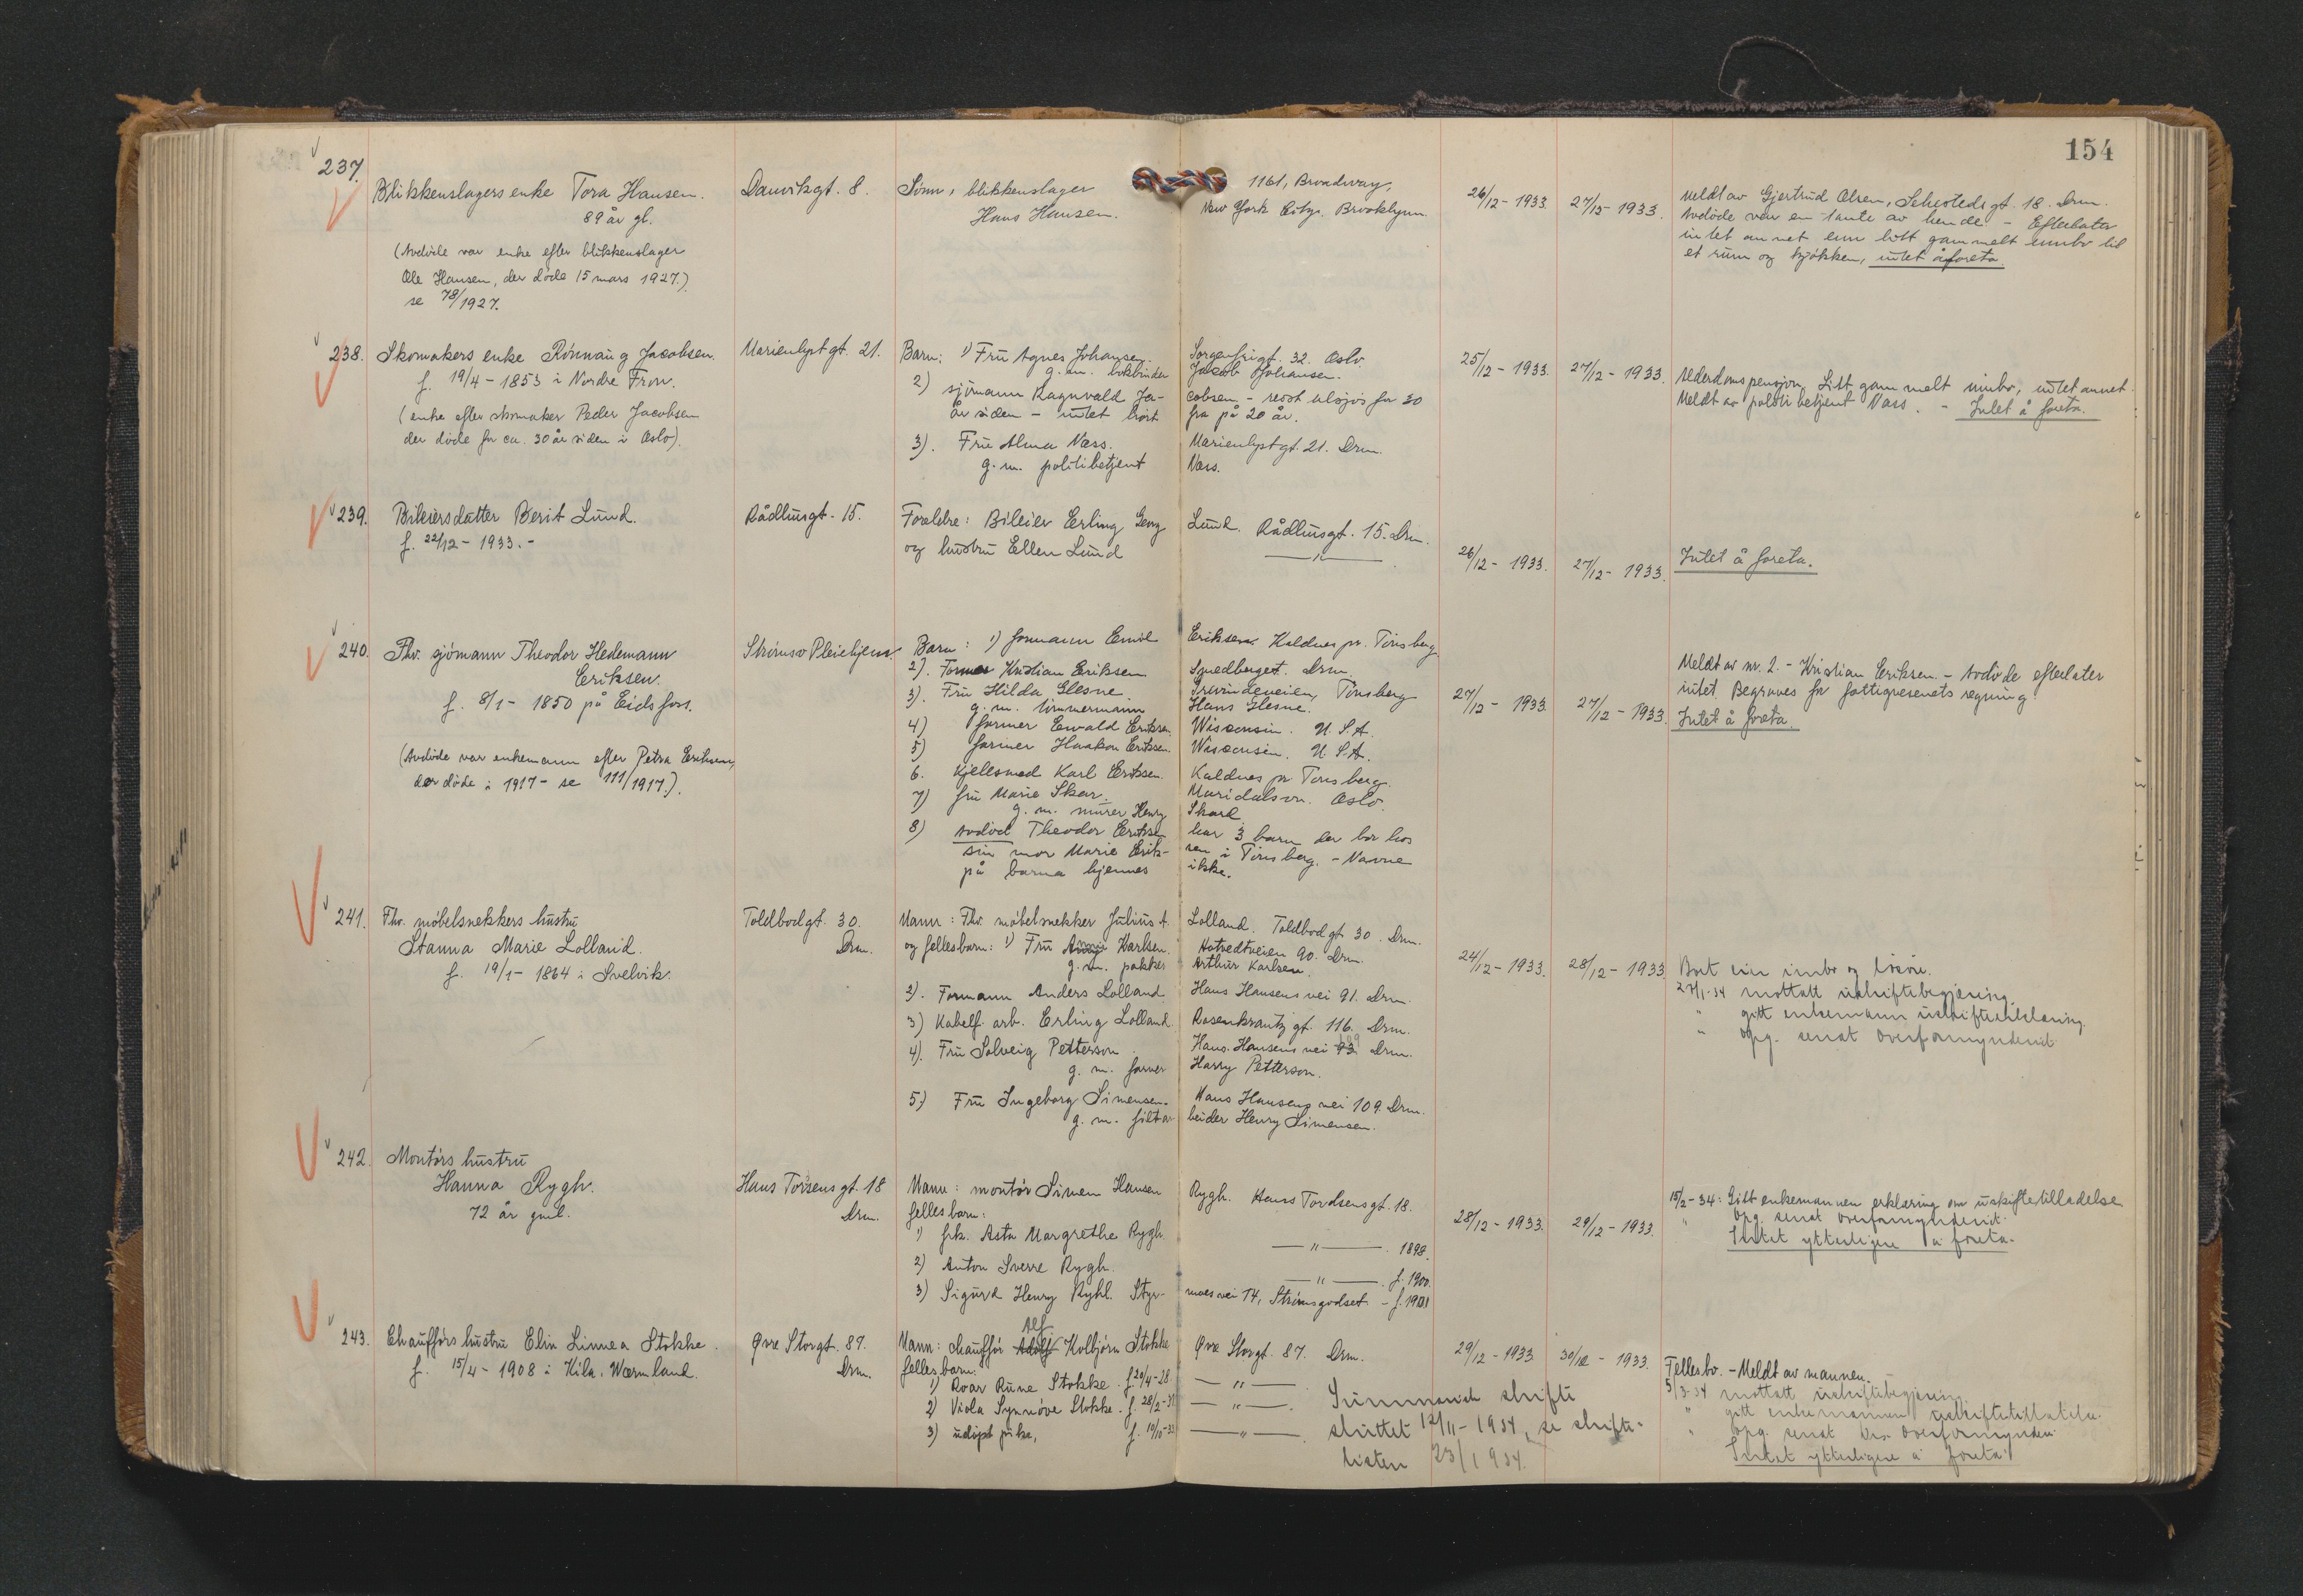 154
237.
Blikkenslagers enke Tora Hansen.
89 år gl.
(Avdöde var enke efter blikkenslager
Ole Hansen, der döde 15 mars 1927.)
se 78/1927.
Danvikgt. 8.
Sönn, blikkenslager
Hans Hansen.
1161, Broadway,
New York City. Brooklynn.
26/12 - 1933.
27/12 - 1933.
Meldt av Gjertrud Olsen, Schestedsgt. 18. Drm.
Avdöde var en tante av hende - Efterlater
intet annet enn litt gammelt innbo til
et rum og kjökken, intet å foreta.
238.
Skomakers enke Rönnaug Jacobsen.
f. 19/4 - 1853 i Nordre Fron.
(enke efter skomaker Peder Jacobsen
der döde for ca. 30 år siden i Oslo).
Marienlystgt. 21.
Barn: 1) Fru Agnes Johansen.
g. m. bokbinder
2) sjömann Ragnvald Ja-
år siden - intet hört
3). Fru Alma Næss.
g. m. politibetjent
Sorgenfrigt. 32. Oslo.
Jacob Johansen.
cobsen - reist utsjös for 30
fra på 20 år.
Marienlystgt. 21. Drm.
Næss.
25/12 - 1933.
27/12 - 1933.
Alderdomspensjon. Litt gammelt innbo, intet annet.
Meldt av politibetjent Næss. - Intet å foreta.
239.
Bileiersdatter Berit Lund.
f. 22/12 - 1933. -
Rådhusgt. 15.
Foreldre: Bileier Erling Georg
og hustru Ellen Lund
Lund. Rådhusgt. 15. Drm.
— " —
26/12 - 1933.
27/12 - 1933.
Intet å foreta.
240.
Fhv. sjömann Theodor Hedemann
Eriksen.
f. 8/1 - 1850 på Eidsfoss.
(Avdöde var enkemann efter Petra Eriksen,
der döde i 1917 - se 111/1917.).
Strömsö Pleiehjem.
Barn: 1) formann Emil
2). Former Kristian Eriksen
3). Fru Hilda Glesne.
g. m. tömmermann
4) farmer Ewald Eriksen.
5) farmer Haakon Eriksen.
6. Kjelesmed Karl Eriksen.
7) fru Marie Skar
g. m. murer Henry
8) avdöd Theodor Eriksen
sin mor Marie Erik-
på barna kjennes
Eriksen Kaldnes pr. Tönsberg.
Smedberget. Drm.
Tönsberg
Hans Glesne.
Wisconsin. U.S.A.
Wisconsin. U.S.A.
Kaldnes pr. Tönsberg.
Maridalsvn. Oslo.
Skard.
har 3 barn der bor hos
sen i Tönsberg. - Navne
ikke.
27/12 - 1933.
27/12 - 1933.
Meldt av nr. 2. - Kristian Eriksen. - Avdöde efterlater
intet. Begraves for fattigvesenets regning.
Intet å foreta.
241.
Fhv. möbelsnekkers hustru
Stanna Marie Lolland.
f. 19/1 - 1864 i Svelvik.
Toldbodgt. 30.
Drm.
Mann: Fhv. möbelsnekker Julius A.
og fellesbarn: 1) Fru Karlsen.
g. m. pakker
2). Formann Anders Lolland
3) Kabelf. arb. Erling Lolland
4). Fru Solveig Petterson.
g. m. farver
5.) Fru Ingeborg Simensen.
g. m. filtar
Lolland. Toldbodgt 30. Drm.
Hotvedtveien 90. Drm.
Arthur Karlsen.
Hans Hansens vei 91. Drm.
Rosenkrantzgt. 116. Drm.
Hans Hansens vei Drm.
Harry Petterson.
Hans Hansens vei 109. Drm.
beider Henry Simensen.
24/12 - 1933.
28/12 - 1933
Boet eier innbo og lösöre.
27/1-34 mottatt uskiftebegjæring.
" gitt enkemann uskifteerklæring.
" Opg. sendt Overformynderiet
242.
Montörs hustru
Hanna Rygh.
72 år gml.
Hans Torsens gt. 18
Drm.
Mann: montör Simen Hansen
felles barn:
1) frk. Asta Margrethe Rygh
2) Anton Sverre Rygh.
3) Sigurd Henry Ryhl. Styr-
Rygh. Hans Tordsensgt. 18.
— " — . 1898.
— " — . f. 1900.
moes vei 74, Strömsgodset. - f. 1901
28/12 - 1933.
29/12 - 1933.
15/2 - 34: Gitt enkemannen erklæring om uskiftetilladelse
" Opg. sendt overformynderiet.
Intet ytterligere å foreta.
243.
Chaufförs hustru Elin Linnea Stokke.
f. 15/4 - 1908 i Kila. Wærmland.
Øvre Storgt. 87.
Drm.
Alf
Mann: chaufför Adolf Kolbjörn Stokke
felles barn:
1) Roar Rune Stokke. f. 20/4-28.
2) Viola Synnöve Stokke. f. 28/2-31
3) udöpt pike, f. 10/10-33
Øvre Storgt. 87. Drm.
— " — .
— " — .
— " — .
Summarisk skifte
sluttet 12/11 - 1934, se skifte-
listen 23/1934.
29/12 - 1933
30/12 - 1933.
Fellesbo. - Meldt av mannen.
5/3-34 mottatt uskiftebegjæring
" gitt enkemannen uskiftetillatelse.
" Opg. sendt Drm. overformynderi
Intet ytterligere å foreta.